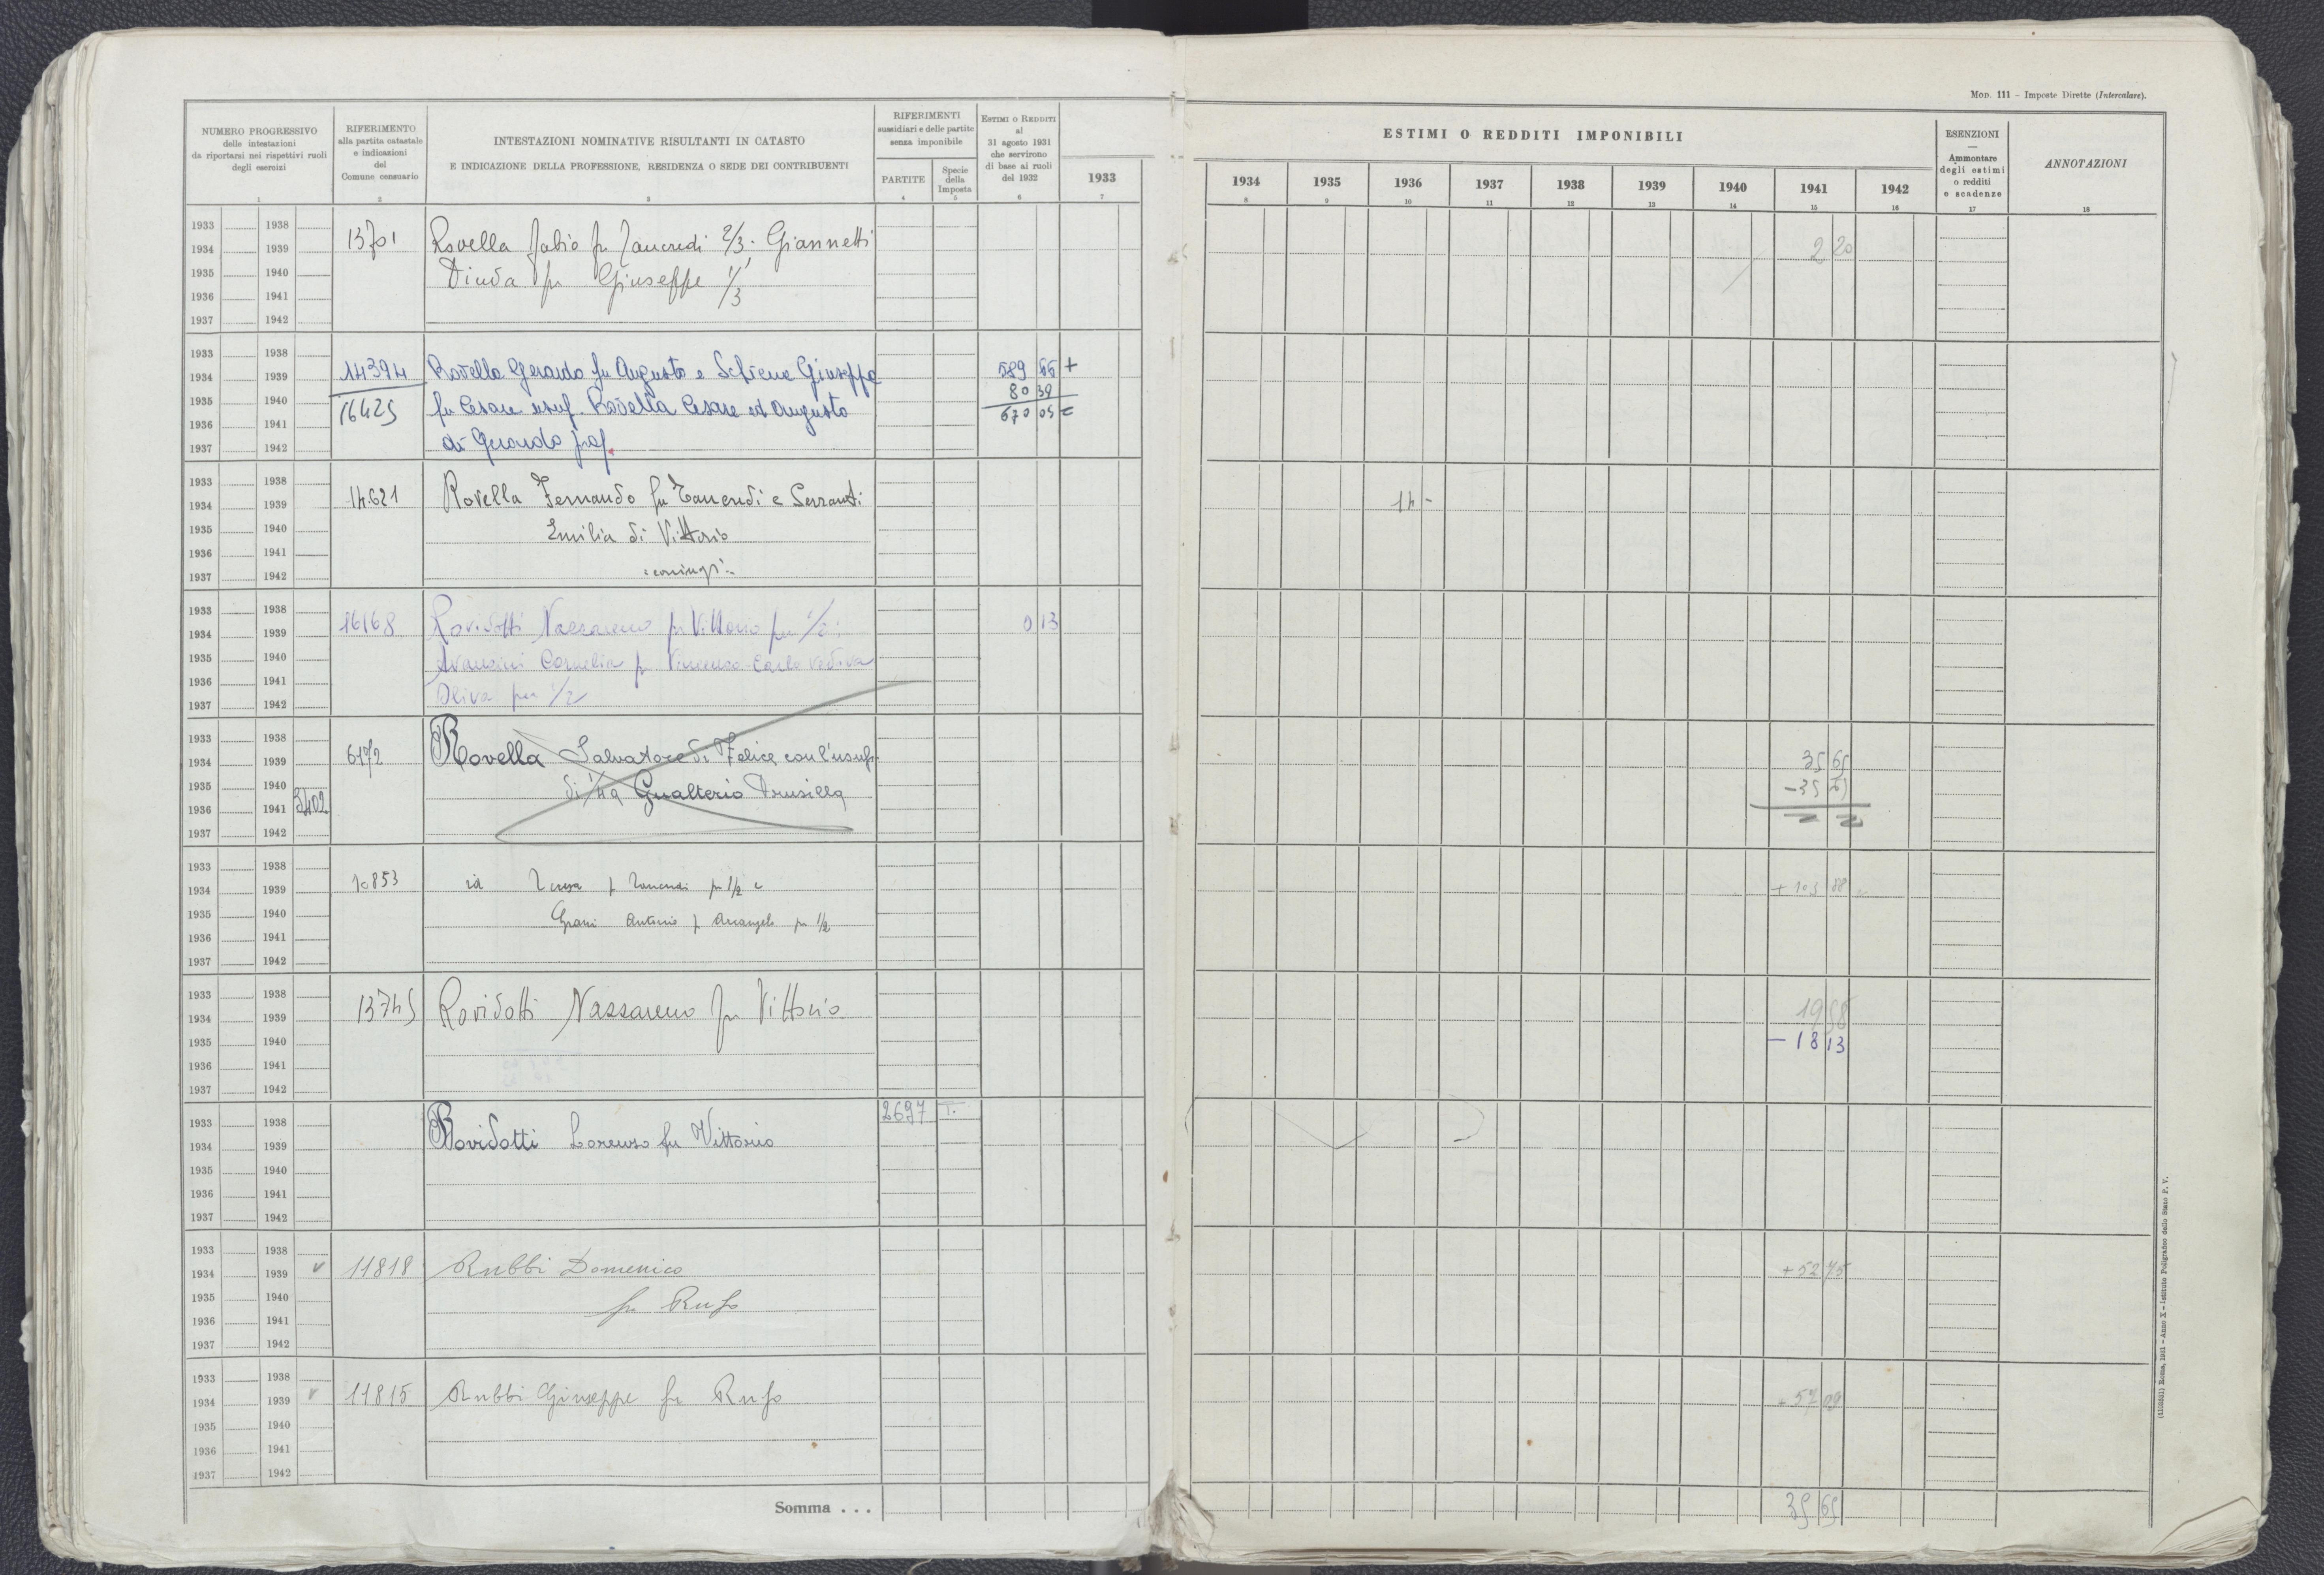 MOD. 111 – Imposte Dirette (Intercalare).
NUMERO PROGRESSIVO
delle intestazioni
da riportarsi nei rispettivi ruoli
degli esercizi
1
RIFERIMENTO
alla partita catastale
e indicazioni
del
Comune censuario
2
INTESTAZIONI NOMINATIVE RISULTANTI IN CATASTO
E INDICAZIONE DELLA PROFESSIONE, RESIDENZA O SEDE DEI CONTRIBUENTI
3
RIFERIMENTI
sussidiari e delle partite
senza imponibile
PARTITE
4
Specie
della
Imposta
5
ESTIMI O REDDITI
al
31 agosto 1931
che servirono
di base ai ruoli
del 1932
6
1933
7
ESTIMI O REDDITI IMPONIBILI
1934 1935 1936 1937 1938 1939 1940 1941 1942
8 9 10 11 12 13 14 15 16
ESENZIONI
—
Ammontare
degli estimi
o redditi
e scadenze
17
ANNOTAZIONI
18
1933 1938
1934 1939 13701 Rovella Fabio fu Tancredi 2/3. Giannetti 2 20
1935 1940 fu Giuseppe 1/3
1936 1941
1937 1942
1933 1938
1934 1939 14394 Rovella Gerardo fu Augusto e Schiene Giuseppa 589 66 +
80 39
1935 1940 16425 fu Cesare usuf. Rovella Cesare ed Augusto 670 05 =
1936 1941
1937 1942 di Gerardo prop.
1933 1938
1934 1939 14621 Rovella Fernando fu Tancredi e Serranti 14 -
1935 1940 Emilia di Vittorio
1936 1941
1937 1942 coniugi
1933 1938
1934 1939 16168 Rovidotti Nazzareno fu Vittorio per 1/2; 0 13
1935 1940 Cornelia fu Vincenzo vedova
1936 1941
1937 1942 Oliva per 1/2
1933 1938
1934 1939 6172 Rovella Salvatore di Felice con l'usuf. 35 65
1935 1940 di 1/4 a Gualterio Drusilla - 35 65
1936 1941 3402
1937 1942
1933 1938
1934 1939 10853 id Teresa fu Tancredi per 1/2 e + 103 88
1935 1940 Antonio fu Arcangelo per 1/2
1936 1941
1937 1942
1933 1938
1934 1939 13745 Rovidotti Nazzareno fu Vittorio 19 58
1935 1940 - 18 13
1936 1941
1937 1942
1933 1938 2697 T.
1934 1939 Rovidotti Lorenzo fu Vittorio
1935 1940
1936 1941
1937 1942
1933 1938
1934 1939 v 11818 Rubbi Domenico + 52 75
1935 1940 fu Rufo
1936 1941
1937 1942
1933 1938
1934 1939 v 11815 Rubbi Giuseppe fu Rufo + 57 09
1935 1940
1936 1941
1937 1942
Somma . . . 35 65
Roma, 1931 – Anno X – Istituto Poligrafico dello Stato P. V.